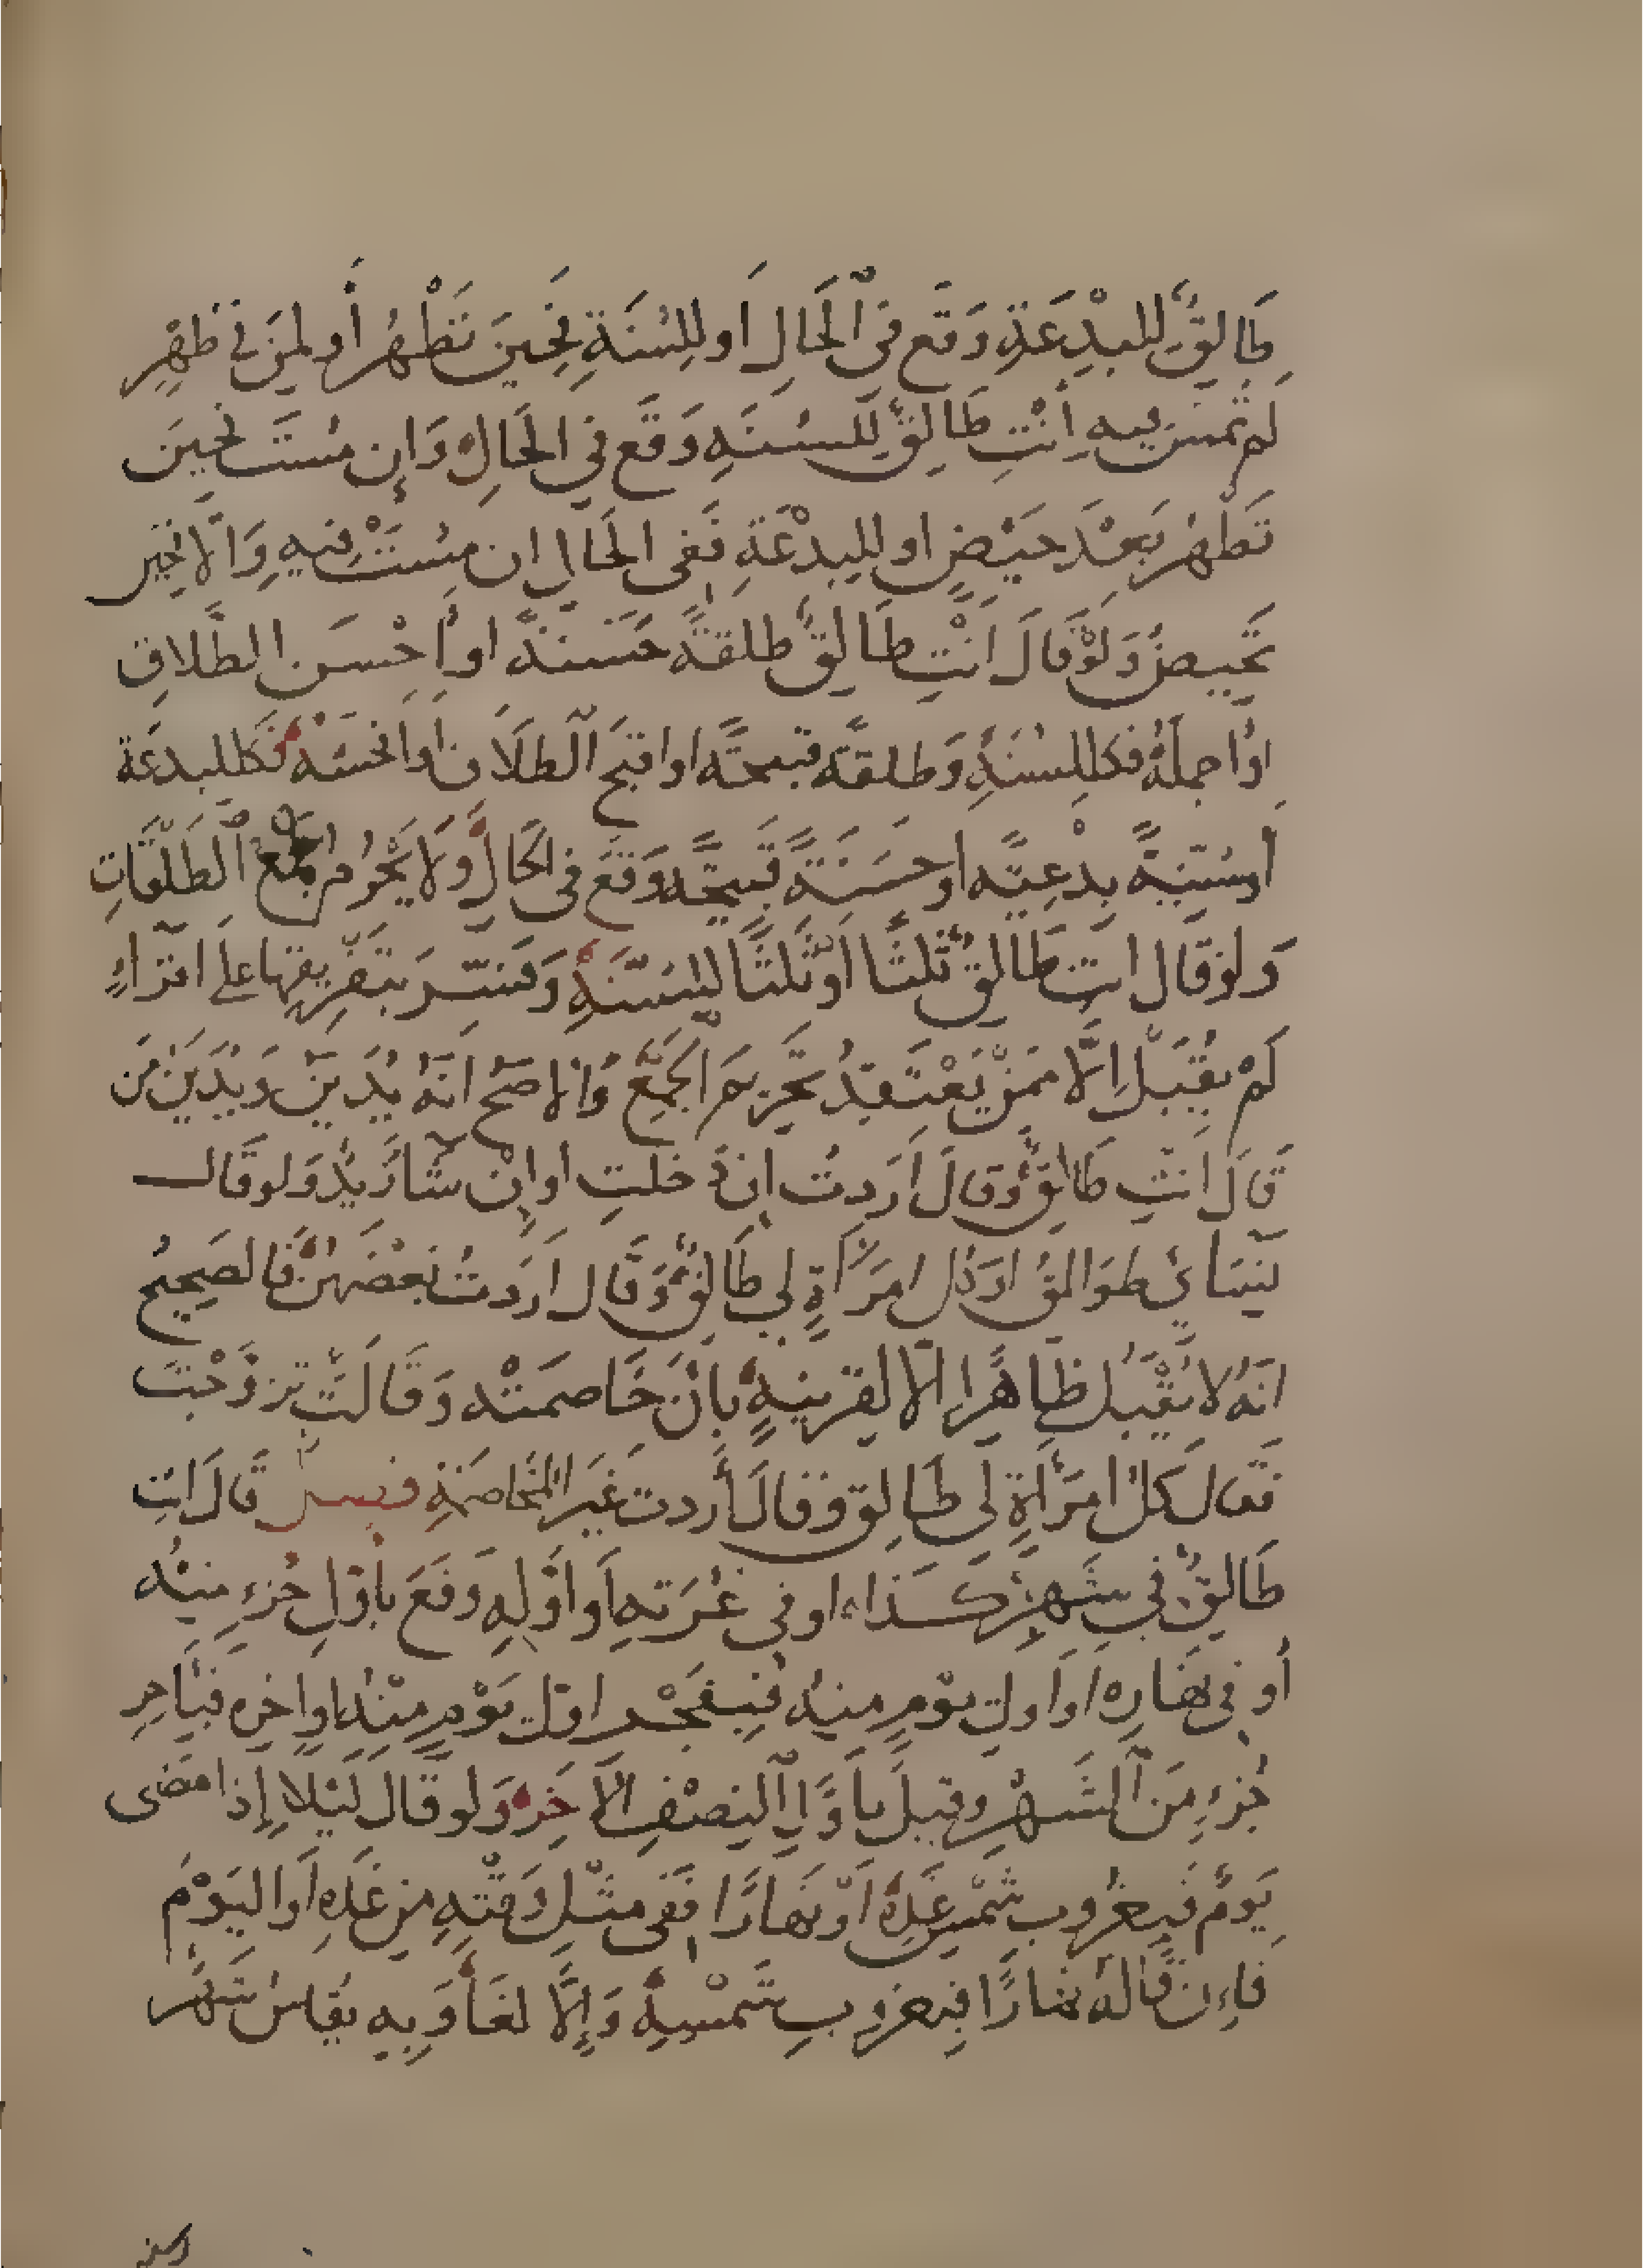 طَالِقٌ لِلبِدْعَةِ وَقَع في الحَالِ اَو لِلسُنَةِ فَحِينَ تَطْهُر أَو لمن في طهْرٍ
لم تمسّ فيه اَنْتِ طَالِقٌ لِلسُنَةِ وَقَع في الحَالِ وَإن مُسَّت فحينَ
تَطْهُر بَعْدَ حَيْضٍ او للبِدْعَةِ فَفى الحَال ان مسّتْ فيه وَاِلّا فحِين
تَحيضُ وَلَوْ قَالَ انْتِ طَالِقٌ طلقةً حَسَنةً او أَحْسَن الطَّلاقِ
اوْ اجملَهُ فكالسُنَةِ وَطلقةً قبيحةً او اقبَح الطلَاق او افحشَه فكللبدعَة
أو سُنيّةً بِدْعِيّةً او حسَنَةً قَبيحَةً وَقَع في الحَالِ وَلا يَحْرُم جَمْع الطَلَقَاتِ
وَلوْ قَال انتِ طَالقٌ ثَلثًا اَوْ ثَلثًا للسُنَّةِ وَفَسّرَ بتَفْرِيقِها علي اقرَاءٍ
لَمْ يُقْبَلْ اِلّا ممَنْ يَعْتَقِدُ تَحْرِيمَ الجَمْعِ وَالاصَحّ انَهُ يُدَيَّن وَيُدَيَّن مَن
قَالَ انتِ طَالِقٌ وَقَالَ اَرَدتُ اِن دَخلتِ اوان شَا زَيْدٌ وَلو قَال
نِسَائي طوَالقُ او كل امرَأةٍ لي طَالِقٌ وَقَال اَرَدتُ بَعْضَهُنَّ فَالصَحِيحُ
انَهُ لا يُقْبَل ظَاهِرًا الّا لقرينةٍ بِأن خَاصمَتْه وَقَالَتْ تزَوَّجْتَ
فَقَال كلّ امرَأةٍ لي طَالِق وَقَالَ أردت غَيرَ المُخَاصَمَةِ فصل قَالَ انتِ
طَالقٌ في شَهْرِ كَذا او في غُرّتِهِ اَو اوّلِهِ وَقَعَ باوّلِ جُزءٍ منهُ
أو في نهَارِه او اول يوْمٍ منهُ فبِفَجْر اوّل يَوْمٍ منْهُ او اخِره فبآخِرِ
جُزءٍ مِنَ الشَهْرِ وقيلَ بأوّلِ النِصْفِ الآخِر وَلو قَال لَيْلًا إذا مَضى
يَومٌ فَبِغرُوبِ شَمْسِ غَدِهِ اَوْ نهَارًا فَفي مثْل وَقتِه مِن غَدِهِ اَو اليَوْمُ
فإن قَالهُ نهَارًا فبغرُوبِ شَمْسِهِ وَاِلَّا لغَا وَبِهِ يقَاسُ شَهْر